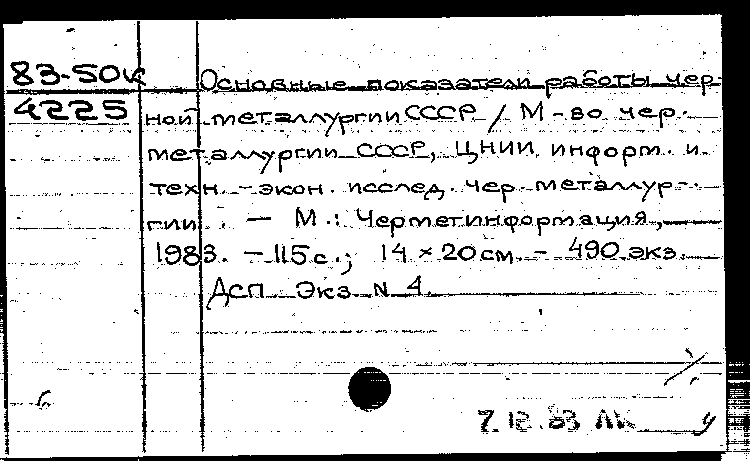 83-50к Основные показатели работы чер-
4225 ной металлургии СССР / М-во чер.
металлургии СССР, ЦНИИ информ. и
техн.-экон. исслед. чер. металлур-
гии. — М.: Черметинформация,
1983. — 115 с.; 14 × 20 см. — 490 экз.
ДСП Экз N 4
7.12.83 ЛК